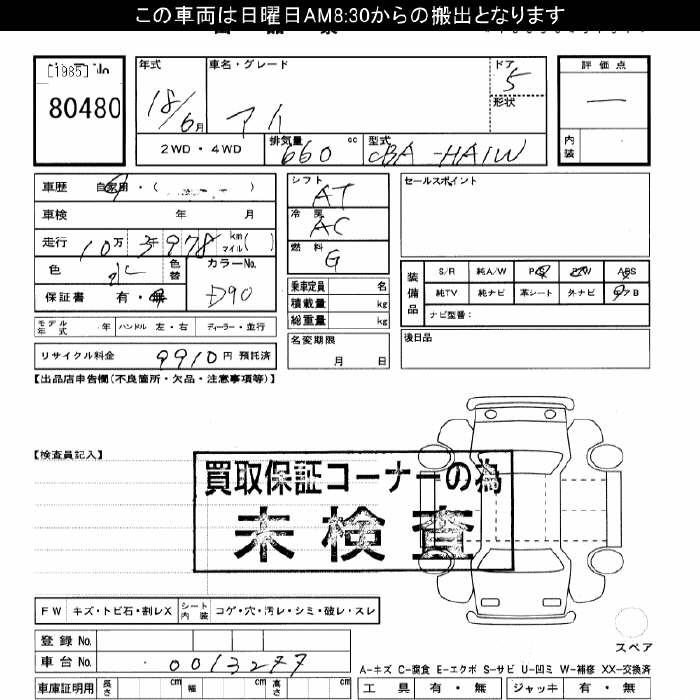 この車両は日曜日AM8:30からの搬出となります
[1985] No
80480
年式 18/6月
車名・グレード アイ
ドア 5
形状
評価点 —
内装
2WD・4WD
排気量 660 cc
型式 CBA-HA1W
車歴 自家用・( )
車検 年 月
走行 10万3千978 km マイル( )
色 水 色替
カラーNo. D90
保証書 有・無
シフト AT
冷房 AC
燃料 G
乗車定員 名
積載量 kg
総重量 kg
セールスポイント
装備品
S/R 純A/W P/S P/W ABS
純TV 純ナビ 革シート 外ナビ エアB
ナビ型番:
モデル年式 年 ハンドル 左・右 ディーラー・並行
名変期限 月 日
後日品
リサイクル料金 9910円 預託済
【出品店申告欄(不良箇所・欠品・注意事項等)】
【検査員記入】
買取保証コーナーの為
未検査
FW キズ・トビ石・割レX シート内装 コゲ・穴・汚レ・シミ・破レ・スレ
登録 No.
車台 No. 0013277
スペア
A-キズ C-腐食 E-エクボ S-サビ U-凹ミ W-補修 XX-交換済
車庫証明用 長さ cm 幅 cm 高さ cm
工具 有・無 ジャッキ 有・無